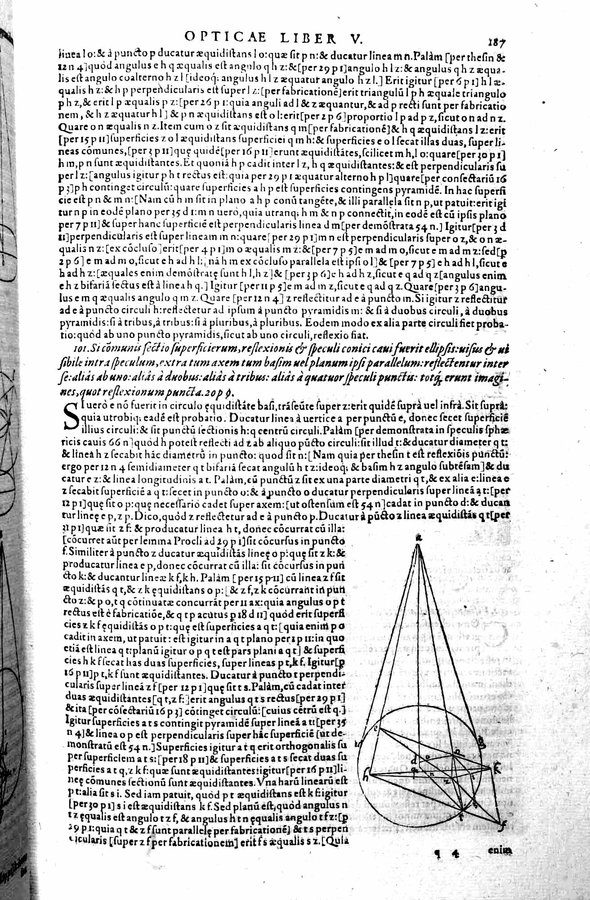 OPTICAE LIBER V. 187
linea l o: & à puncto p ducatur æquidistans l o: quæ sit p n: & ducatur linea m n. Palàm [per thesin &
12 n 4] quòd angulus e h q æqualis est angulo q h z: & [per 29 p 1] angulo h l z: & angulus q h z æqua-
lis est angulo coalterno h z l [ideoq́; angulus h l z æquatur angulo h z l.] Erit igitur [per 6 p 1] h l æ-
qualis h z: & h p perpendicularis est super l z: [per fabricationē] erit triangulū l p h æquale triangulo
p h z, & erit l p æqualis p z: [per 26 p 1: quia anguli ad l & z æquantur, & ad p recti sunt per fabricatio
nem, & h z æquatur h l] & p n æquidistans est o l: erit [per 2 p 6] proportio l p ad p z, sicut o n ad n z.
Quare o n æqualis n z. Item cum o z sit æquidistans q m [per fabricationē] & h q æquidistans l z: erit
[per 15 p 11] superficies z o l æquidistans superficiei q m h: & superficies e o l secat illas duas, super li-
neas cōmunes, [per 3 p 11] quę quidē [per 16 p 11] erunt æquidistantes, scilicet m h, l o: quare [per 30 p 1]
h m, p n sunt æquidistantes. Et quoniā h p cadit inter l z, h q æquidistantes: & est perpendicularis su
per l z: [angulus igitur p h t rectus est: quia per 29 p 1 æquatur alterno h p l] quare [per consectariū 16
p 3] p h continget circulū: quare superficies a h p est superficies contingens pyramidē. In hac superfi
cie est p n & m n: [Nam cū h m sit in plano a h p conū tangēte, & illi parallela sit n p, ut patuit: erit igi
tur n p in eodē plano per 35 d 1: m n uerò, quia utranq; h m & n p connectit, in eodē est cū ipsis plano
per 7 p 11] & super hanc superficiē est perpendicularis linea d m [per demōstrata 54 n.] Igitur [per 3 d
11] perpendicularis est super lineam m n: quare [per 29 p 1] m n est perpendicularis super o z, & o n æ-
qualis n z: [ex cōcluso] erit [per 4 p 1] m o æqualis m z: & [per 7 p 5] e m ad m o, sicut e m ad m z: sed [p
2 p 6] e m ad m o, sicut e h ad h l: [nā h m ex cōcluso parallela est ipsi o l] & [per 7 p 5] e h ad h l, sicut e
h ad h z: [æquales enim demōstratę sunt h l, h z] & [per 3 p 6] e h ad h z, sicut e q ad q z [angulus enim
e h z bifariā sectus est à linea h q.] Igitur [per 11 p 5] e m ad m z, sicut e q ad q z. Quare [per 3 p 6] angu-
lus e m q æqualis angulo q m z. Quare [per 12 n 4] z reflectitur ad e à puncto m. Si igitur z reflectitur
ad e à puncto circuli h: reflectetur ad ipsum à puncto pyramidis m: & si à duobus circuli, à duobus
pyramidis: si à tribus, à tribus: si à pluribus, à pluribus. Eodem modo ex alia parte circuli fiet proba-
tio: quòd ab uno puncto pyramidis, sicut ab uno circuli, reflexio fiat.
101. Si cōmunis sectio superficierum, reflexionis & speculi conici caui fuerit ellipsis: uisus & ui
sibile intra speculum, extra tum axem tum basim uel planum ipsi parallelum: reflectentur inter
se: aliàs ab uno: aliàs à duobus: aliàs à tribus: aliàs à quatuor speculi punctis: totq́; erunt imagi-
nes, quot reflexionum puncta. 20 p 9.
SI uerò e nō fuerit in circulo æquidistāte basi, trāseūte super z: erit quidē suprà uel infrà. Sit suprà:
quia utrobiq; eadē est probatio. Ducatur linea à uertice a per punctū e, donec secet superficiē
illius circuli: & sit punctū sectionis h: q centrū circuli. Palàm [per demonstrata in speculis sphæ
ricis cauis 66 n] quòd h potest reflecti ad z ab aliquo pūcto circuli: sit illud t: & ducatur diameter q t:
& linea h z secabit hāc diametrū in puncto: quod sit n: [Nam quia per thesin t est reflexiōis punctū:
ergo per 12 n 4 semidiameter q t bifariā secat angulū h t z: ideoq́; & basim h z angulo subtēsam] & du
catur e z: & linea longitudinis a t. Palàm, cū punctū z sit ex una parte diametri q t, & ex alia e: linea e
z secabit superficiē a q t: secet in puncto o: & à puncto o ducatur perpendicularis super linea a t: [per
12 p 1] quę sit o p: quę necessariò cadet super axem: [ut ostensum est 54 n] cadat in puncto d: & ducan
tur lineę e p, z p. Dico, quòd z reflectetur ad e à puncto p. Ducatur à pūcto z linea æquidistās q t [per
31 p 1] quæ sit z f: & producatur linea h t, donec cōcurrat cū illa:
[cōcurret aūt per lemma Procli ad 29 p 1] sit cōcursus in puncto
f. Similiter à puncto z ducatur æquidistās lineę o p: quę sit z k: &
producatur linea e p, donec cōcurrat cū illa: sit cōcursus in pun
cto k: & ducantur lineæ k f, k h. Palàm [per 15 p 11] cū linea z f sit
æquidistās q t, & z k ęquidistans o p: [& z f, z k cōcurrāt in pun
cto z: & p o, t q cōtinuatæ concurrāt per 11 ax: quia angulus o p t
rectus est è fabricatiōe, & q t p acutus p 18 d 11] quòd erit superfi
cies z k f ęquidistans o p t: quę est superficies a q t: [quia enim p o
cadit in axem, ut patuit: est igitur in a q t plano per p 11: in quo
etiā est linea q t: planū igitur o p q t est pars plani a q t] & superfi
cies h k f secat has duas superficies, super lineas p t, k f. Igitur [p
16 p 11] p t, k f sunt æquidistantes. Ducatur à puncto t perpendi-
cularis super lineā z f [per 12 p 1] quę sit t s. Palàm, cū cadat inter
duas æquidistantes [q t, z f:] erit angulus q t s rectus [per 29 p 1]
& ita [per cōsectariū 16 p 3] cōtinget circulū: [cuius cētrū est q.]
Igitur superficies a t s contingit pyramidē super lineā a t: [per 35
n 4] & linea o p est perpendicularis super hāc superficiē [ut de-
monstratū est 54 n.] Superficies igitur a t q erit orthogonalis su
per superficiem a t s: [per 18 p 11] & superficies a t s secat duas su
perficies a t q, z k f: quæ sunt æquidistantes: igitur [per 16 p 11] li-
neę cōmunes sectionū sunt æquidistantes. Vna harū linearū est
p t: alia sit s i. Sed iam patuit, quòd p t æquidistans est k f: igitur
[per 30 p 1] s i est æquidistans k f. Sed planū est, quòd angulus n
t z ęqualis est angulo t z f, & angulus h t n ęqualis angulo t f z: [p
29 p 1: quia q t & z f sunt parallelę per fabricationē] & t s perpen
dicularis [super z f per fabricationem] erit f s æqualis s z. [Quia
q 4 enim